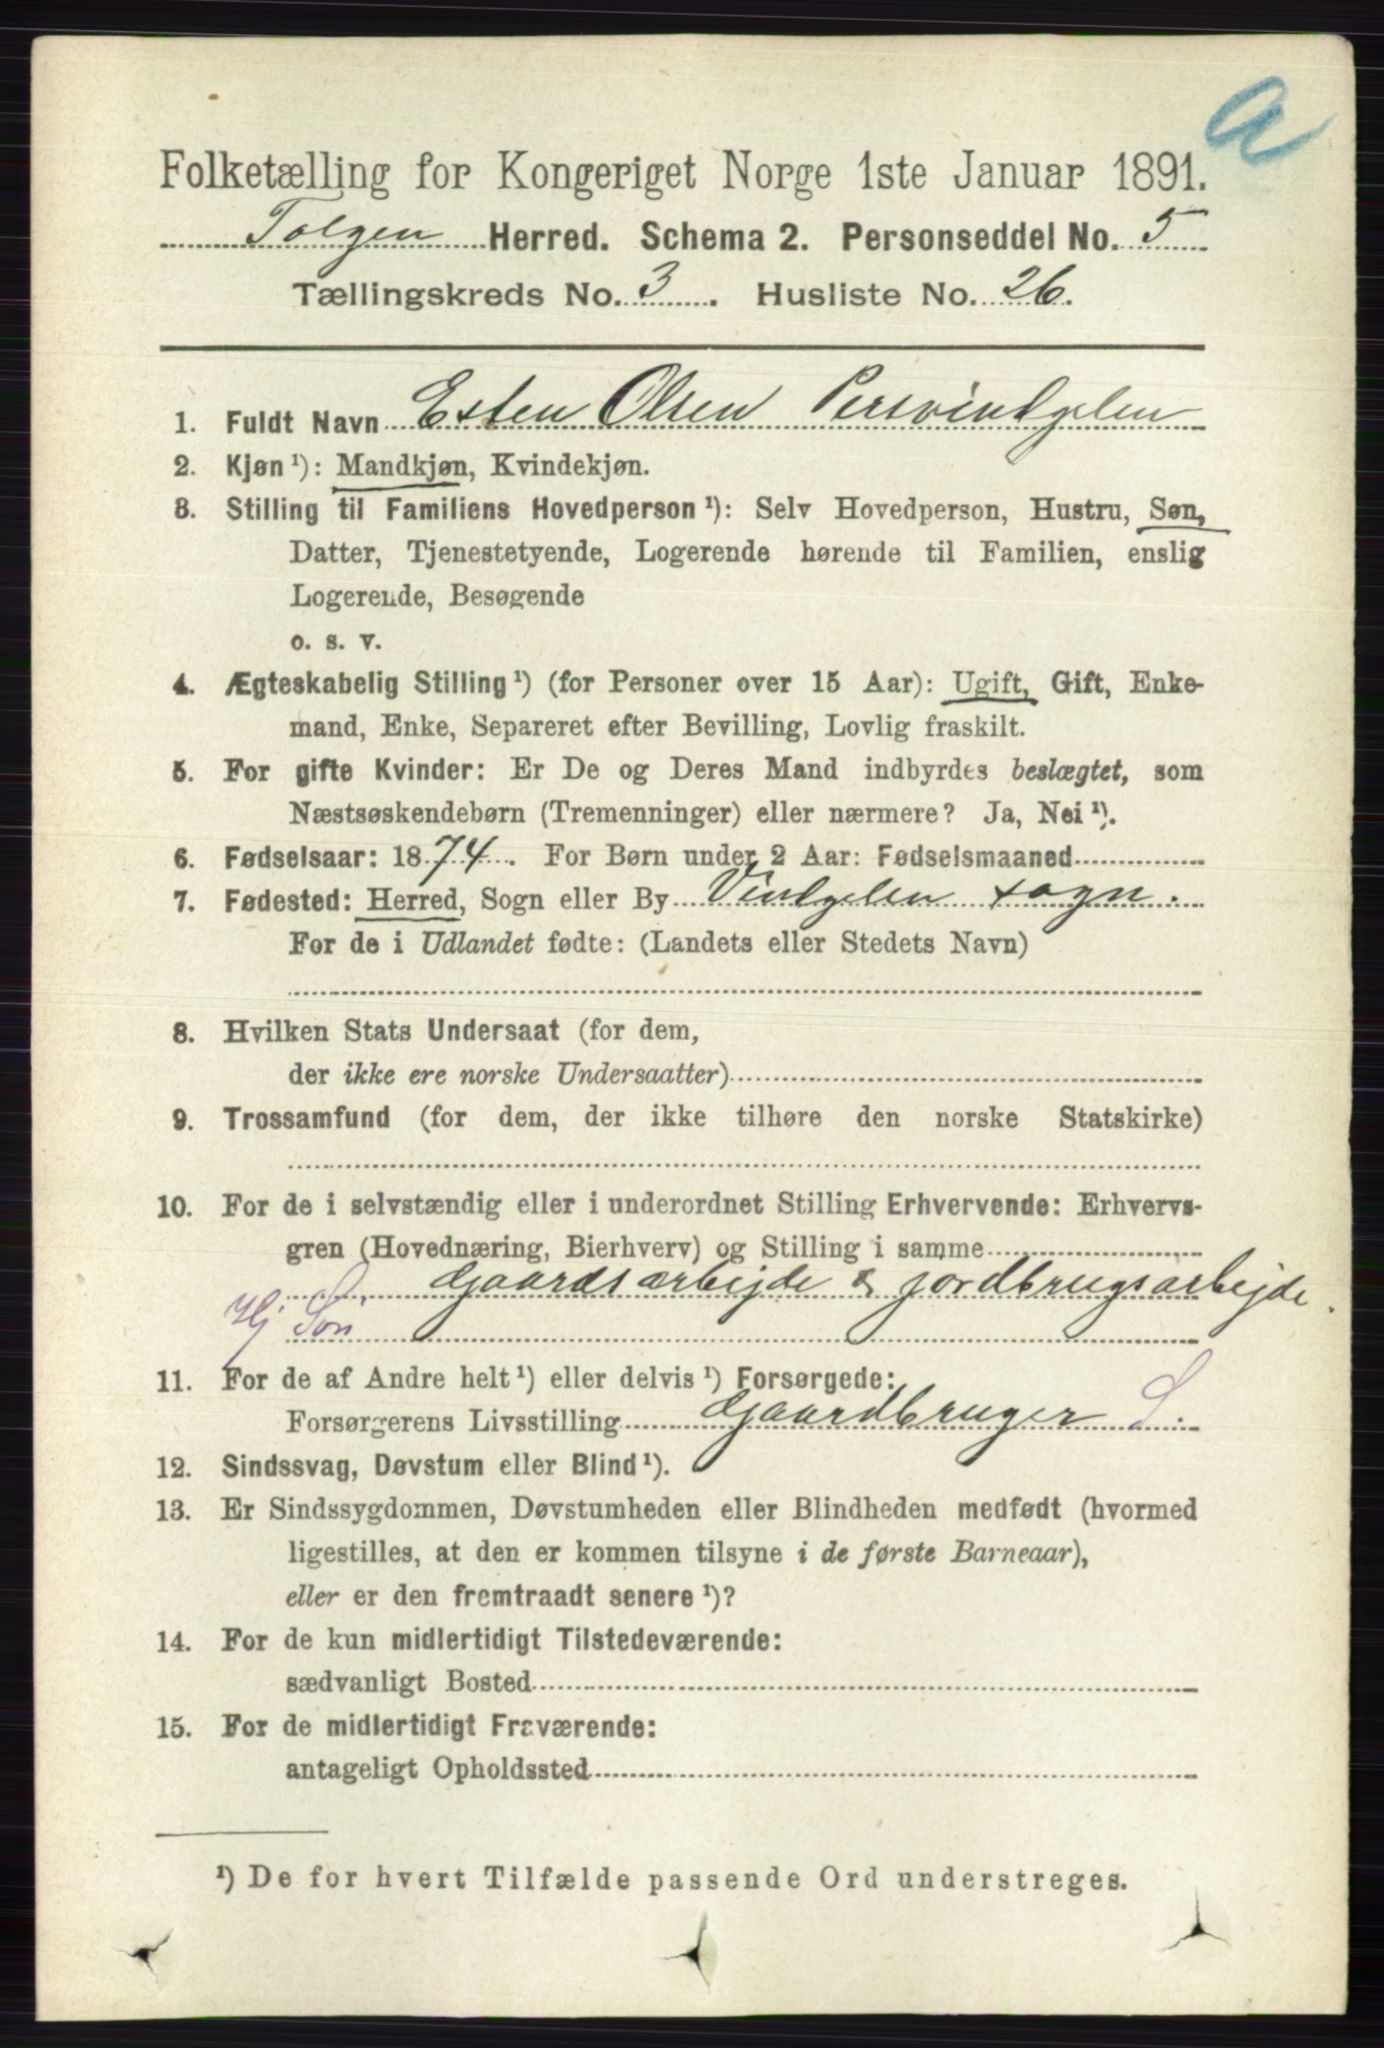 a
Folketælling for Kongeriget Norge 1ste Januar 1891.
Tolgen Herred. Schema 2. Personseddel No. 5
Tællingskreds No. 3. Husliste No. 26.
1. Fuldt Navn Esten Olsen Persvintgelen
2. Kjøn ¹): Mandkjøn, Kvindekjøn.
3. Stilling til Familiens Hovedperson ¹): Selv Hovedperson, Hustru, Søn,
Datter, Tjenestetyende, Logerende hørende til Familien, enslig
Logerende, Besøgende
o. s. v.
4. Ægteskabelig Stilling ¹) (for Personer over 15 Aar): Ugift, Gift, Enke-
mand, Enke, Separeret efter Bevilling, Lovlig fraskilt.
5. For gifte Kvinder: Er De og Deres Mand indbyrdes beslægtet, som
Næstsøskendebørn (Tremenninger) eller nærmere? Ja, Nei ¹).
6. Fødselsaar: 1874. For Børn under 2 Aar: Fødselsmaaned
7. Fødested: Herred, Sogn eller By Vintgelen sogn.
For de i Udlandet fødte: (Landets eller Stedets Navn)
8. Hvilken Stats Undersaat (for dem,
der ikke ere norske Undersaatter)
9. Trossamfund (for dem, der ikke tilhøre den norske Statskirke)
10. For de i selvstændig eller i underordnet Stilling Erhvervende: Erhvervs-
gren (Hovednæring, Bierhverv) og Stilling i samme
Gaardsarbejde & jordbrugsarbejde.
Hj Søn
11. For de af Andre helt ¹) eller delvis ¹) Forsørgede:
Forsørgerens Livsstilling Gaardbruger S.
12. Sindssvag, Døvstum eller Blind ¹).
13. Er Sindssygdommen, Døvstumheden eller Blindheden medfødt (hvormed
ligestilles, at den er kommen tilsyne i de første Barneaar),
eller er den fremtraadt senere ¹)?
14. For de kun midlertidigt Tilstedeværende:
sædvanligt Bosted
15. For de midlertidigt Fraværende:
antageligt Opholdssted
¹) De for hvert Tilfælde passende Ord understreges.